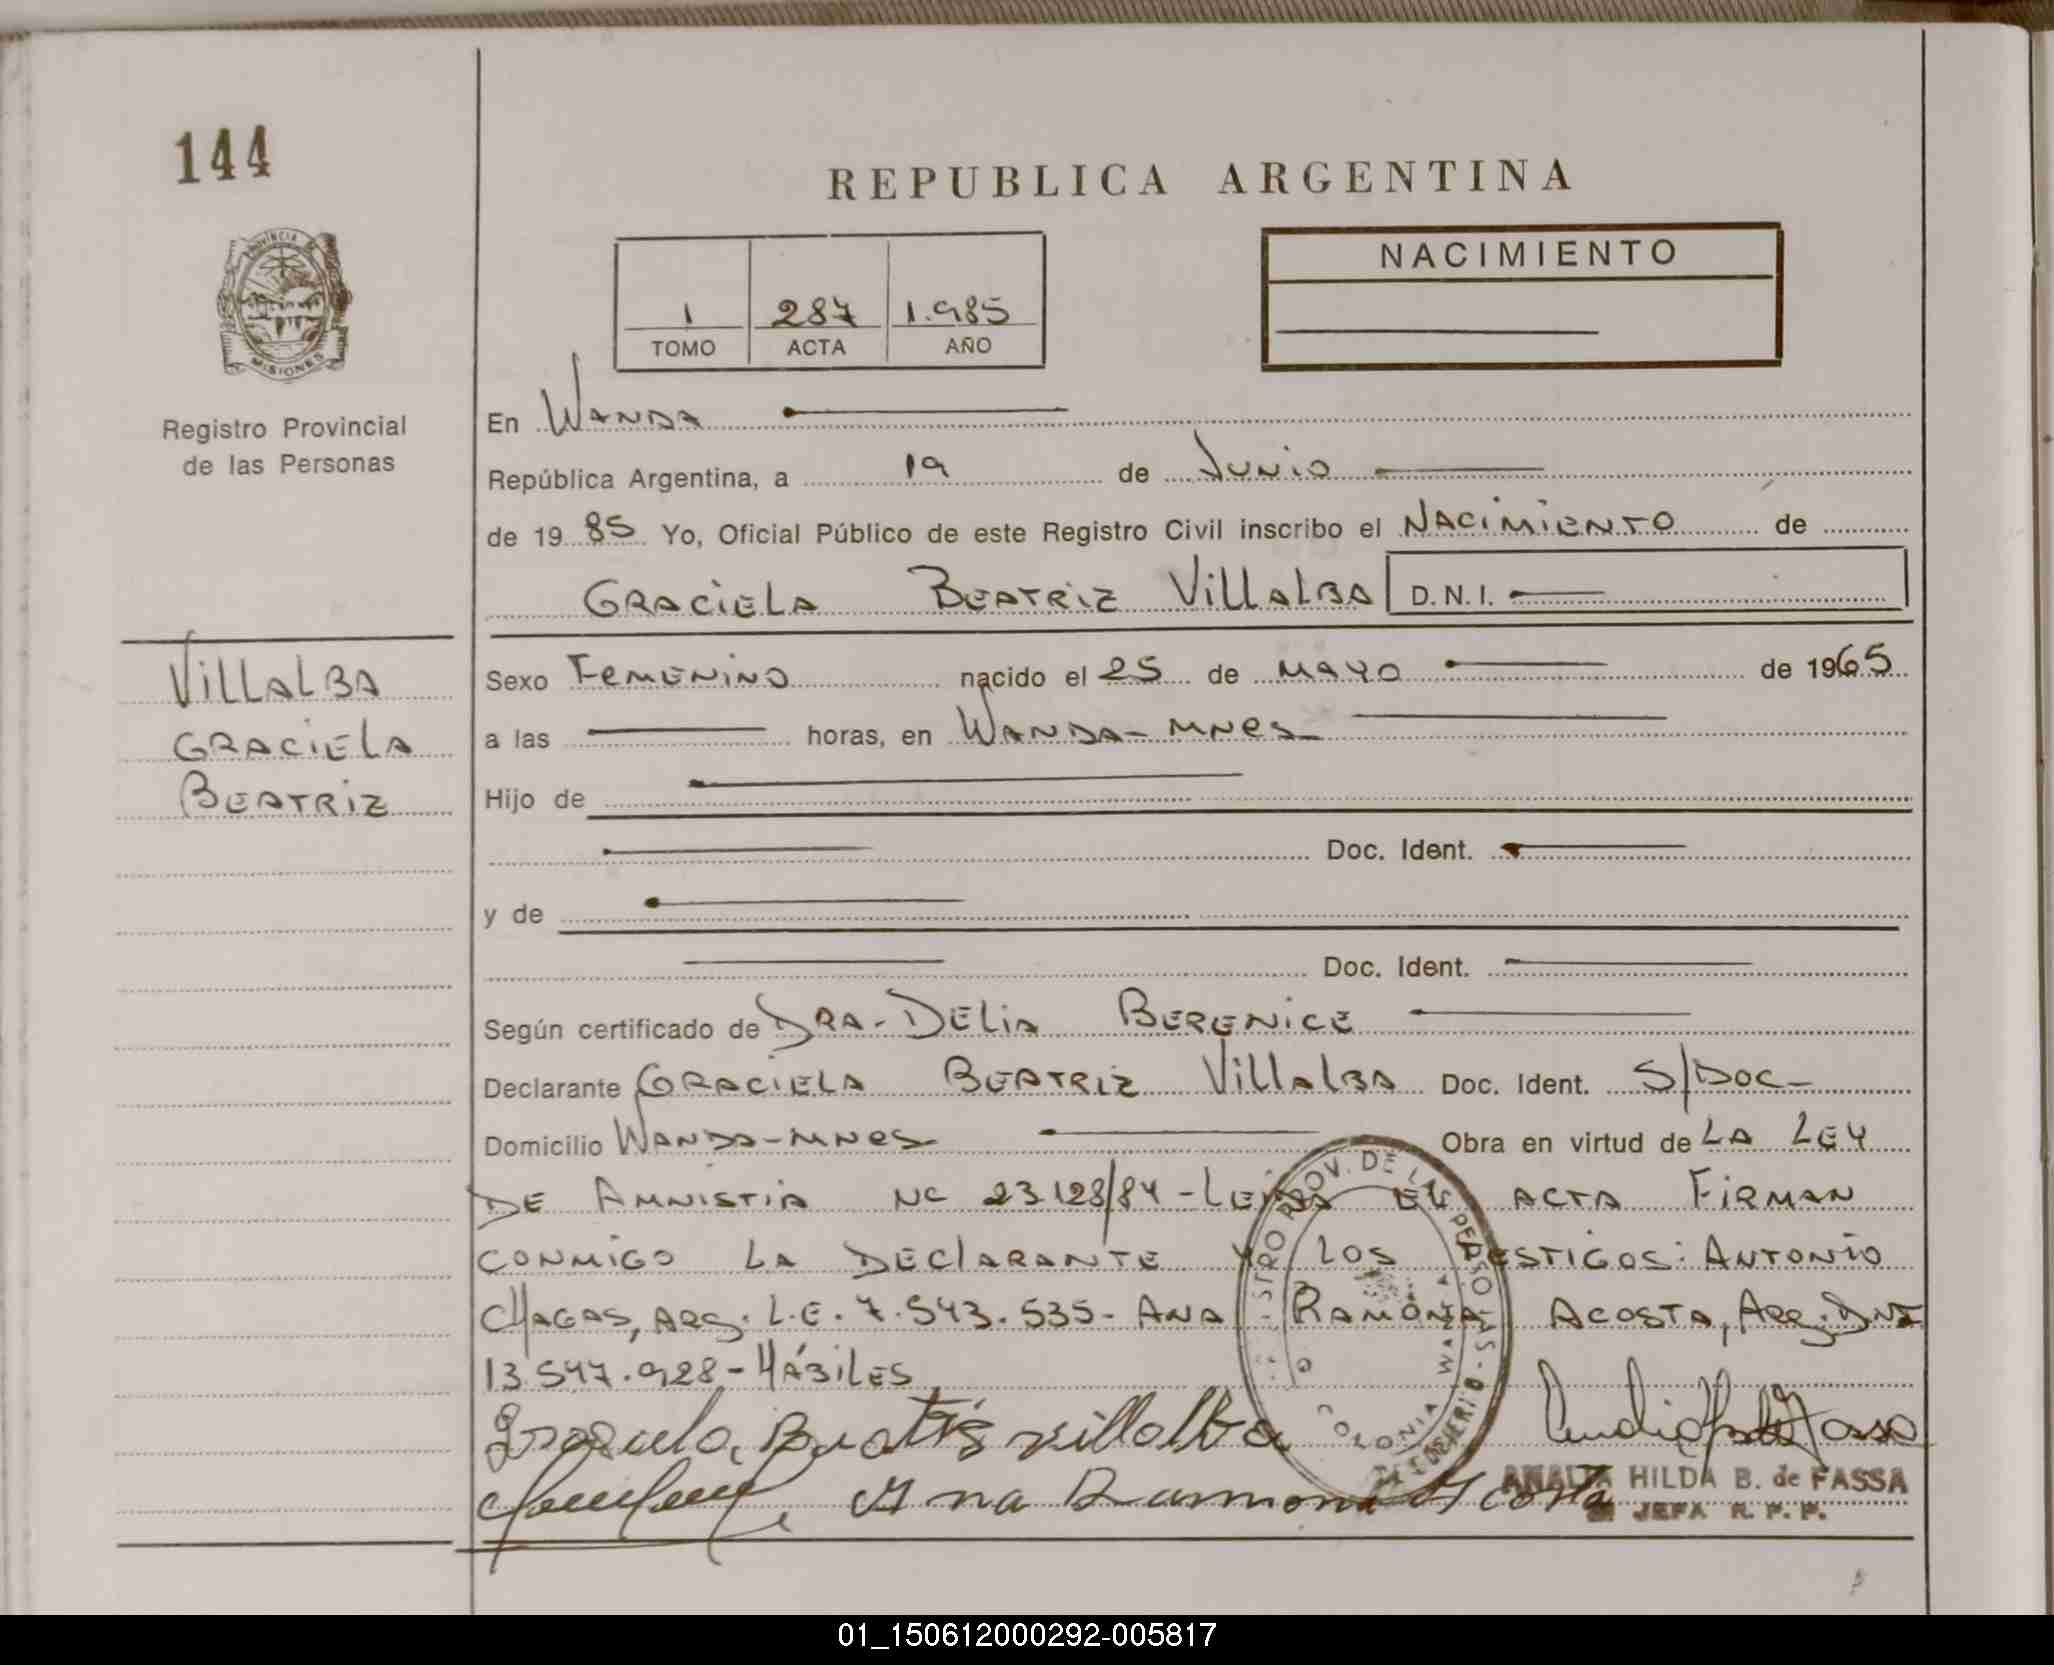 144
REPUBLICA ARGENTINA
PROVINCIA DE
MISIONES
Registro Provincial
de las Personas
1 287 1.985
TOMO ACTA AÑO
NACIMIENTO
En WANDA
República Argentina, a 19 de JUNIO
de 1985 Yo, Oficial Público de este Registro Civil inscribo el NACIMIENTO de
GRACIELA BEATRIZ VILLALBA D.N.I.
VILLALBA
GRACIELA
BEATRIZ
Sexo FEMENINO nacido el 25 de MAYO de 1965
a las horas, en WANDA-MNES
Hijo de
Doc. Ident.
y de
Doc. Ident.
Según certificado de DRA-DELIA BERENICE
Declarante GRACIELA BEATRIZ VILLALBA Doc. Ident. S/DOC-
Domicilio WANDA-MNES Obra en virtud de LA LEY
DE AMNISTIA 23128/84-LEIDA EL ACTA FIRMAN
CONMIGO LA DECLARANTE Y LOS TESTIGOS: ANTONIO
CHAGAS, ARG. L.E. 7.543.535- ANA RAMONA ACOSTA, ARG. DNI
13.547.928-HÁBILES
Graciela Beatris villalba
Ana Ramona Acosta
PROV. DE LAS PERSONAS
COLONIA WANDA
HILDA B. de FASSA
JEFA R. P. P.
01_150612000292-005817